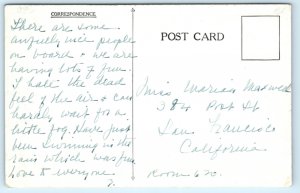 CORRESPONDENCE
POST CARD
There are some
awfully nice people
on board & we are
having lots of fun.
I hate the dead
feel of the air & can
hardly wait for a
little fog. Have just
been swimming in the
rain which was fun
Love to everyone
Miss Marian Maxwell
384 Post St
San Francisco
California
Room 620.